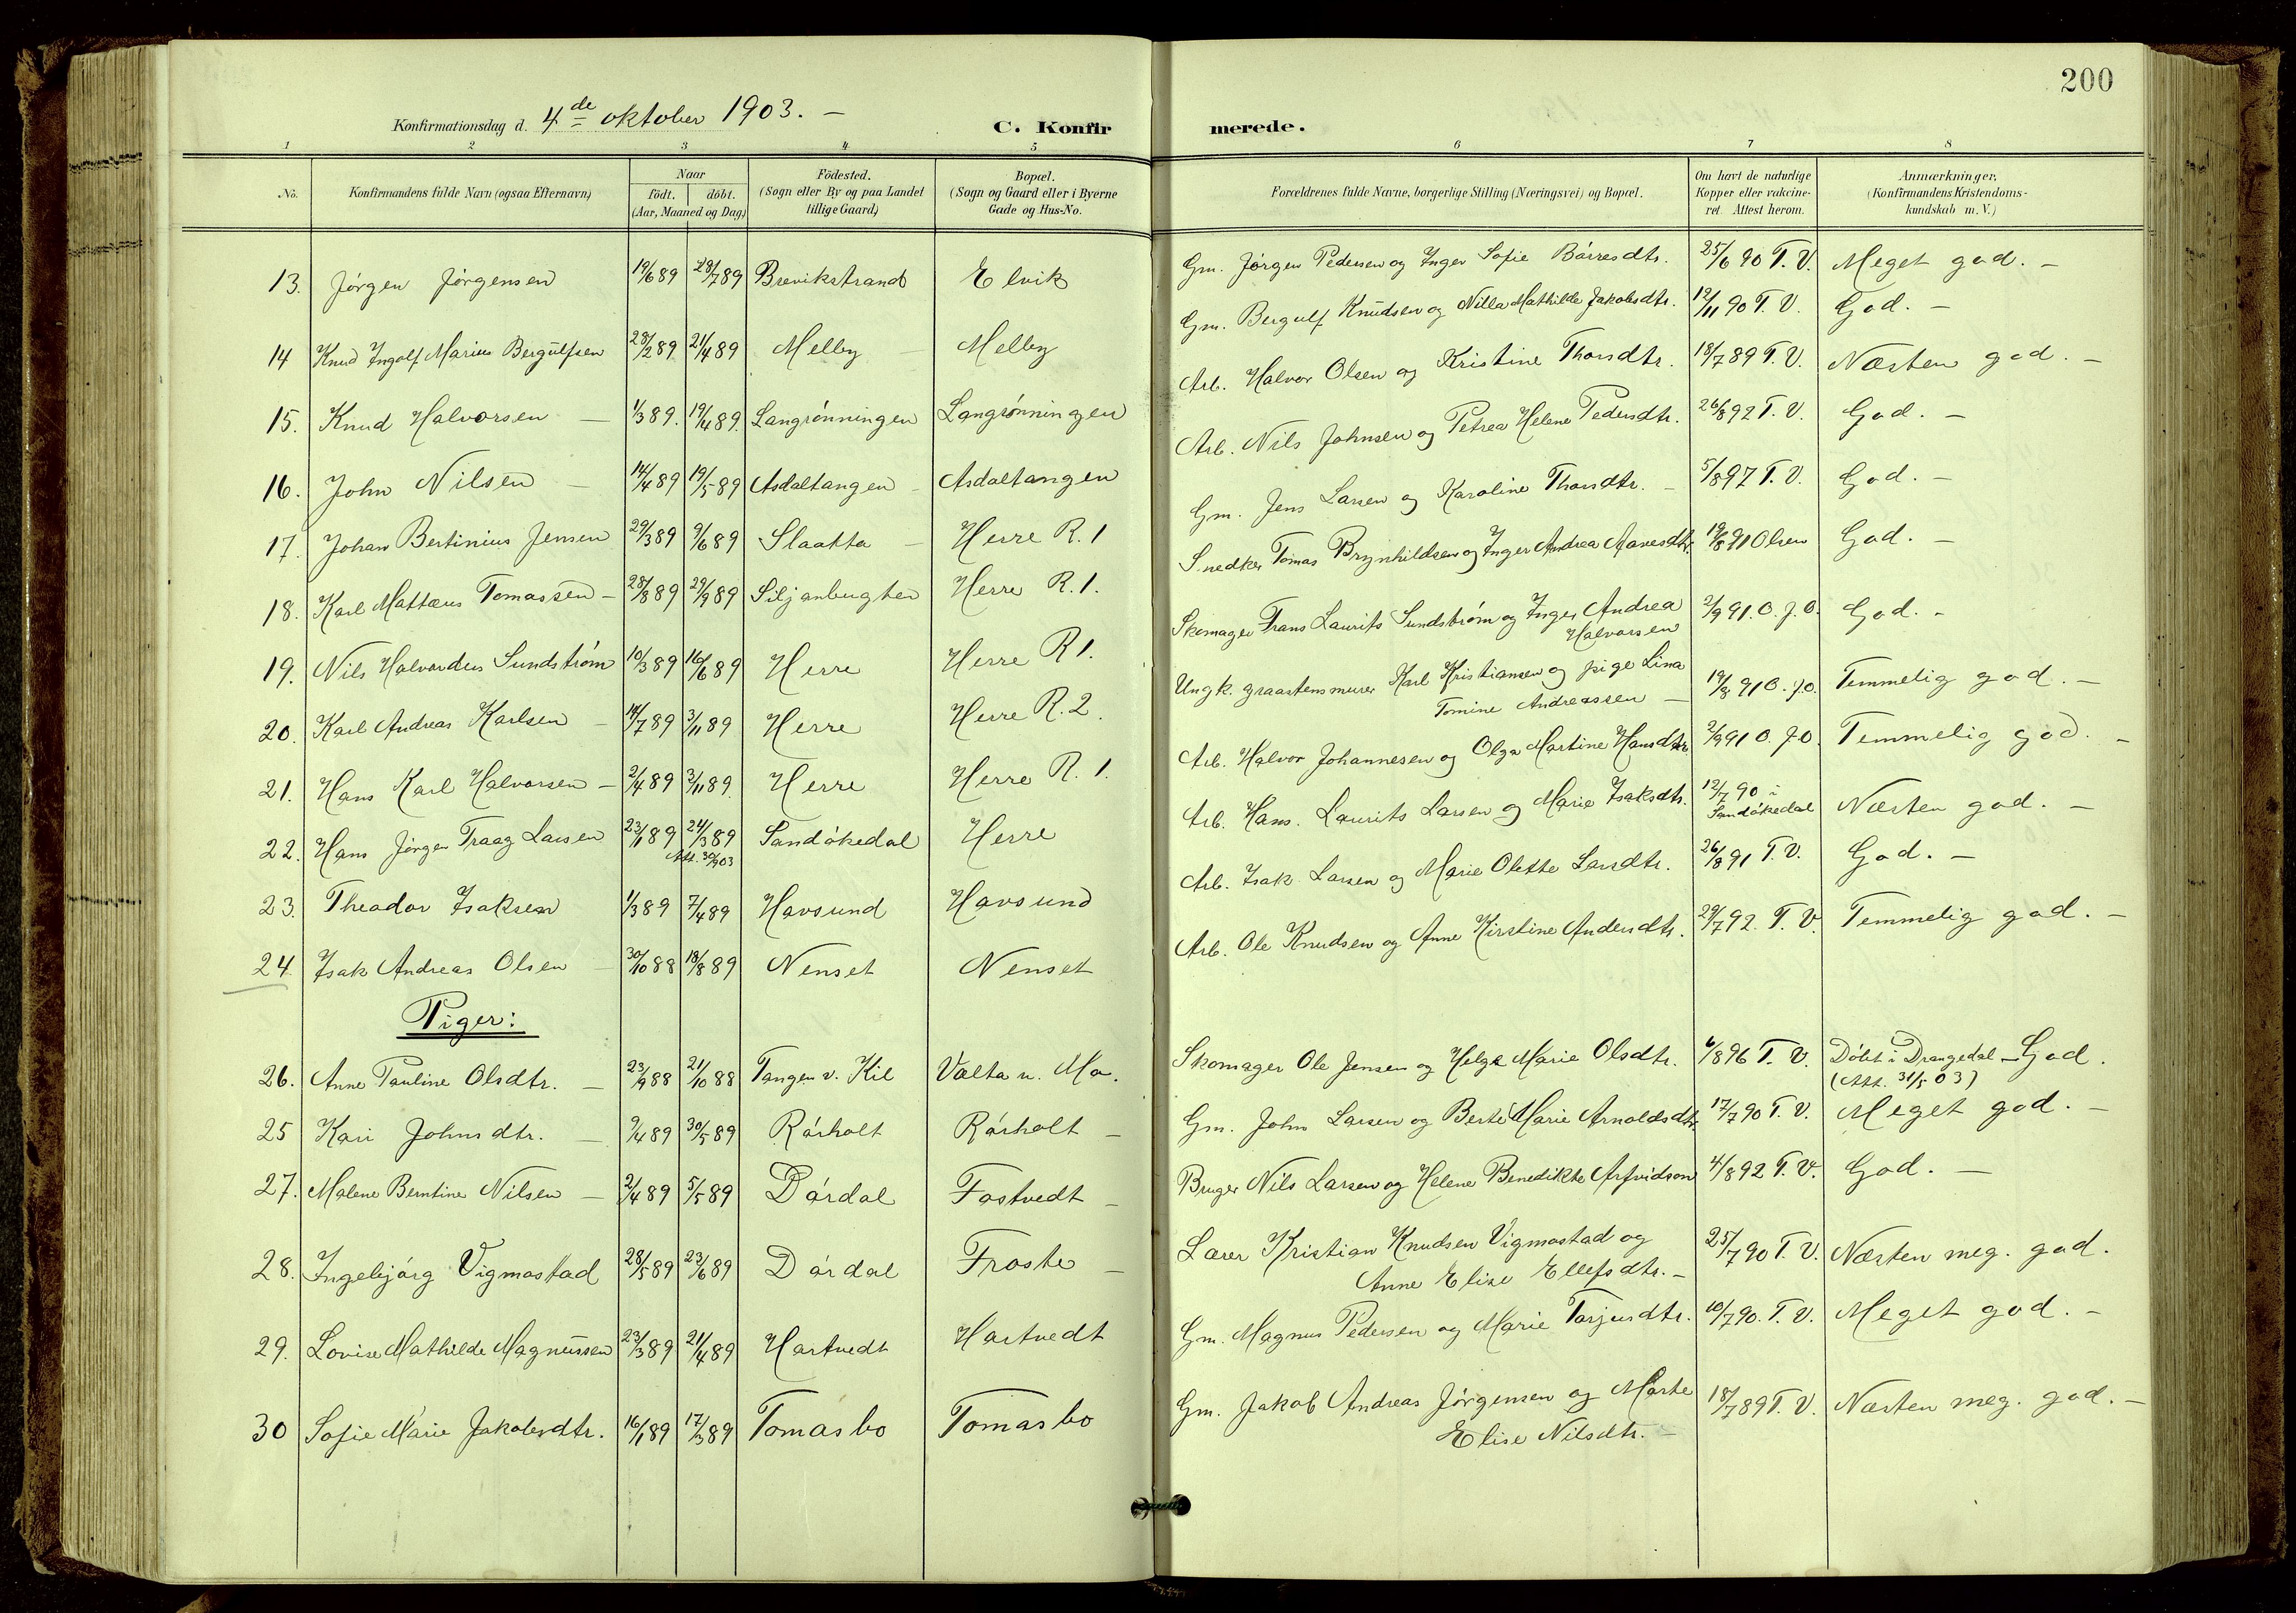 200
Konfirmationsdag d. 4de oktober 1903. —
C. Konfirmerede.
1 2 3 4 5 6 7 8
No.
Konfirmandens fulde Navn (ogsaa Efternavn)
Naar
födt. döbt.
(Aar, Maaned og Dag)
Födested.
(Sogn eller By og paa Landet
tillige Gaard)
Bopæl.
(Sogn og Gaard eller i Byerne
Gade og Hus-No.
Forældrenes fulde Navne, borgerlige Stilling (Næringsvei) og Bopæl.
Om havt de naturlige
Kopper eller vakcine-
ret. Attest herom.
Anmærkninger.
(Konfirmandens Kristendoms-
kundskab m. V.)
13. Jørgen Jørgensen 19/6 89 28/7 89 Brevikstrand Elvik Gm. Jørgen Pedersen og Inger Sofie Børresdtr. 25/6 90 T. V. Meget god. —
14 Knud Ingolf Marius Bergulfsen 28/2 89 21/4 89 Melby Melby Gm. Bergulf Knudsen og Nilla Mathilde Jakobsdtr. 12/11 90 T. V. God. —
15. Knud Halvorsen — 1/3 89. 19/4 89. Langrønningen Langrønningen Arb. Halvor Olsen og Kristine Thorsdtr. 18/7 89 T. V. Næsten god. —
16. John Nilsen — 14/4 89 19/5 89 Asdaltangen — Asdaltangen Arb. Nils Johnsen og Petrea Helene Pedersdtr. 26/8 92 T. V. God. —
17. Johan Bertinius Jensen 29/3 89 9/6 89 Slaatta — Herre R. 1 Gm. Jens Larsen og Karoline Thorsdtr. — 5/8 97 T. V. God. —
18. Karl Mattæus Tomassen — 28/8 89 29/9 89 Siljanbugten Herre R. 1. Snedker Tomas Brynhildsen og Inger Andrea Aanesdtr. 19/8 91 Olsen God. —
19. Nils Halvardus Sundstrøm 10/3 89 16/6 89 Herre Herre R 1. Skomager Frans Laurits Sundstrøm og Inger Andrea
Halvorsen 2/9 91. O. J. O. God. —
20. Karl Andreas Karlsen — 14/7 89 3/11 89 Herre Herre R. 2. Ungk. graastensmurer Karl Kristiansen og pige Lina
Tomine Andreassen — 19/8 91 O. J. O. Temmelig god. —
21. Hans Karl Halvorsen — 2/4 89 3/11 89. Herre Herre R. 1. Arb. Halvor Johannesen og Olga Martine Hansdtr 2/9 91 O. J. O. Temmelig god. —
22. Hans Jørgen Traag Larsen 23/1 89 24/3 89 Sandøkedal Herre Arb. Hans. Laurits Larsen og Marie Isaksdtr. 12/7 90 i Næsten god. —
Att. 30/9 03 Sandøkedal
23. Theodor Isaksen 1/3 89 7/4 89 Havsund Havsund Arb. Isak Larsen og Marie Olette Larsdtr. 26/8 91 T. V. God. —
24. Isak Andreas Olsen — 30/10 88 18/8 89 Nenset Nenset Arb. Ole Knudsen og Anne Kirstine Andersdtr. 29/7 92. T. V. Temmelig god. —
Piger:
26. Anne Pauline Olsdtr. — 23/9 88 21/10 88 Tangen v. Kil Valta u. Mo. Skomager Ole Jensen og Helga Marie Olsdtr. 6/8 96 T. V. Döbt i Drangedal — God.
(Att. 31/5 03)
25 Kari Johnsdtr. — 9/4 89 30/5 89 Rørholt Rørholt — Gm. John Larsen og Berte Marie Arnoldsdtr. 17/7 90 T. V. Meget god. —
27. Malene Berntine Nilsen — 2/4 89 5/5 89 Dørdal Fostvedt — Bruger Nils Larsen og Helene Benedikte Arfvidson 4/8 92 T. V. God. —
28. Ingebjørg Vigmostad 28/5 89 23/6 89 Dørdal Froste — Lærer Kristian Knudsen Vigmostad og
Anne Elise Ellefsdtr. — 25/7 90 T. V. Næsten meg. god.
29. Lovise Mathilde Magnussen 23/3 89 21/4 89 Hartvedt Hartvedt Gm. Magnus Pedersen og Marie Tarjusdtr. 10/7 90. T. V. Meget god. —
30 Sofie Marie Jakobsdtr. 16/1 89 17/3 89 Tomasbo Tomasbo Gm. Jakob Andreas Jørgensen og Marte
Elise Nilsdtr. — 18/7 89 T. V. Næsten meg. god. —